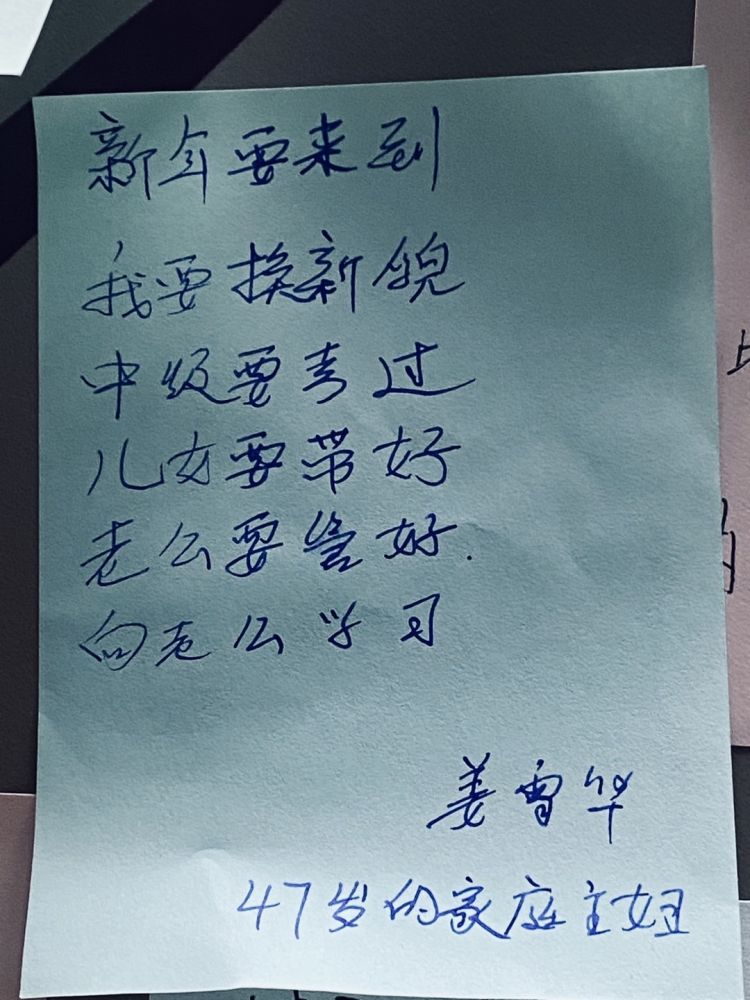 新年要来到
我要换新貌
中级要考过
儿女要带好
老公要管好.
向老公学习
姜雪华
47岁的家庭主妇